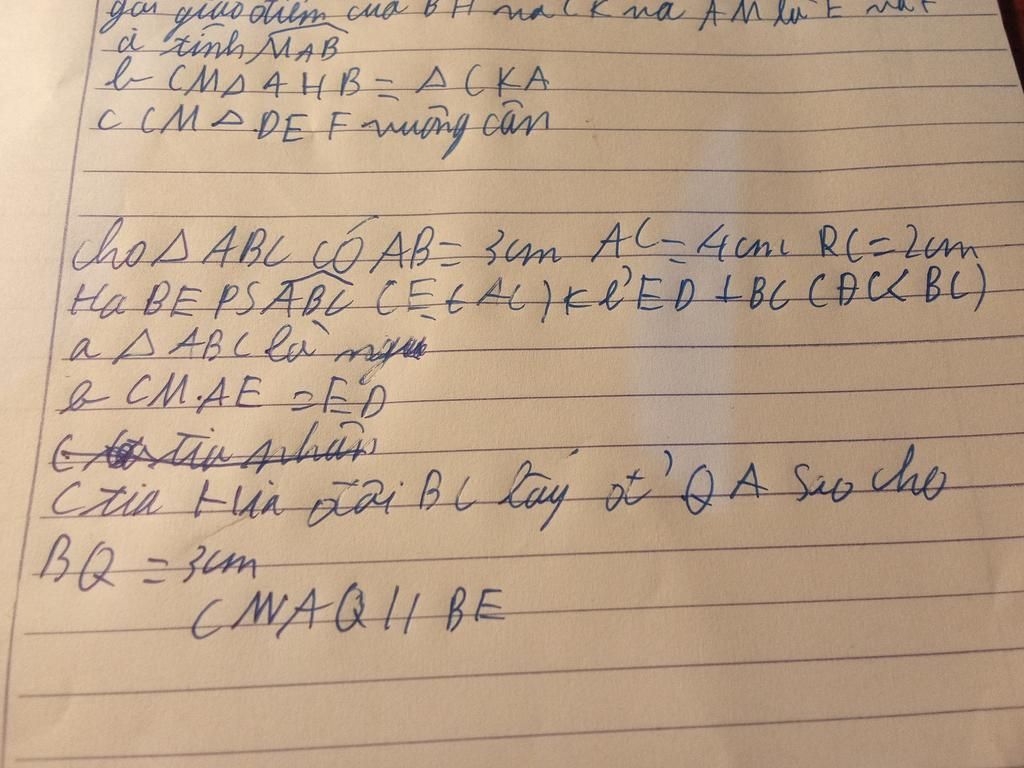 gọi giao điểm của BH và CK và AM là E và F
a tính MAB
b CM Δ AHB = Δ CKA
C CM Δ DEF vuông cân
Cho Δ ABC CÓ AB = 3cm AC = 4cm BC = 2cm
Ha BE PS ABC (E ∈ AC) Kẻ ED ⊥ BC (ĐC< BC)
a Δ ABC là
b CM. AE = ED
C tia phân
C tia đối BC lấy Q A Sao cho
BQ = 3cm
CM AQ // BE